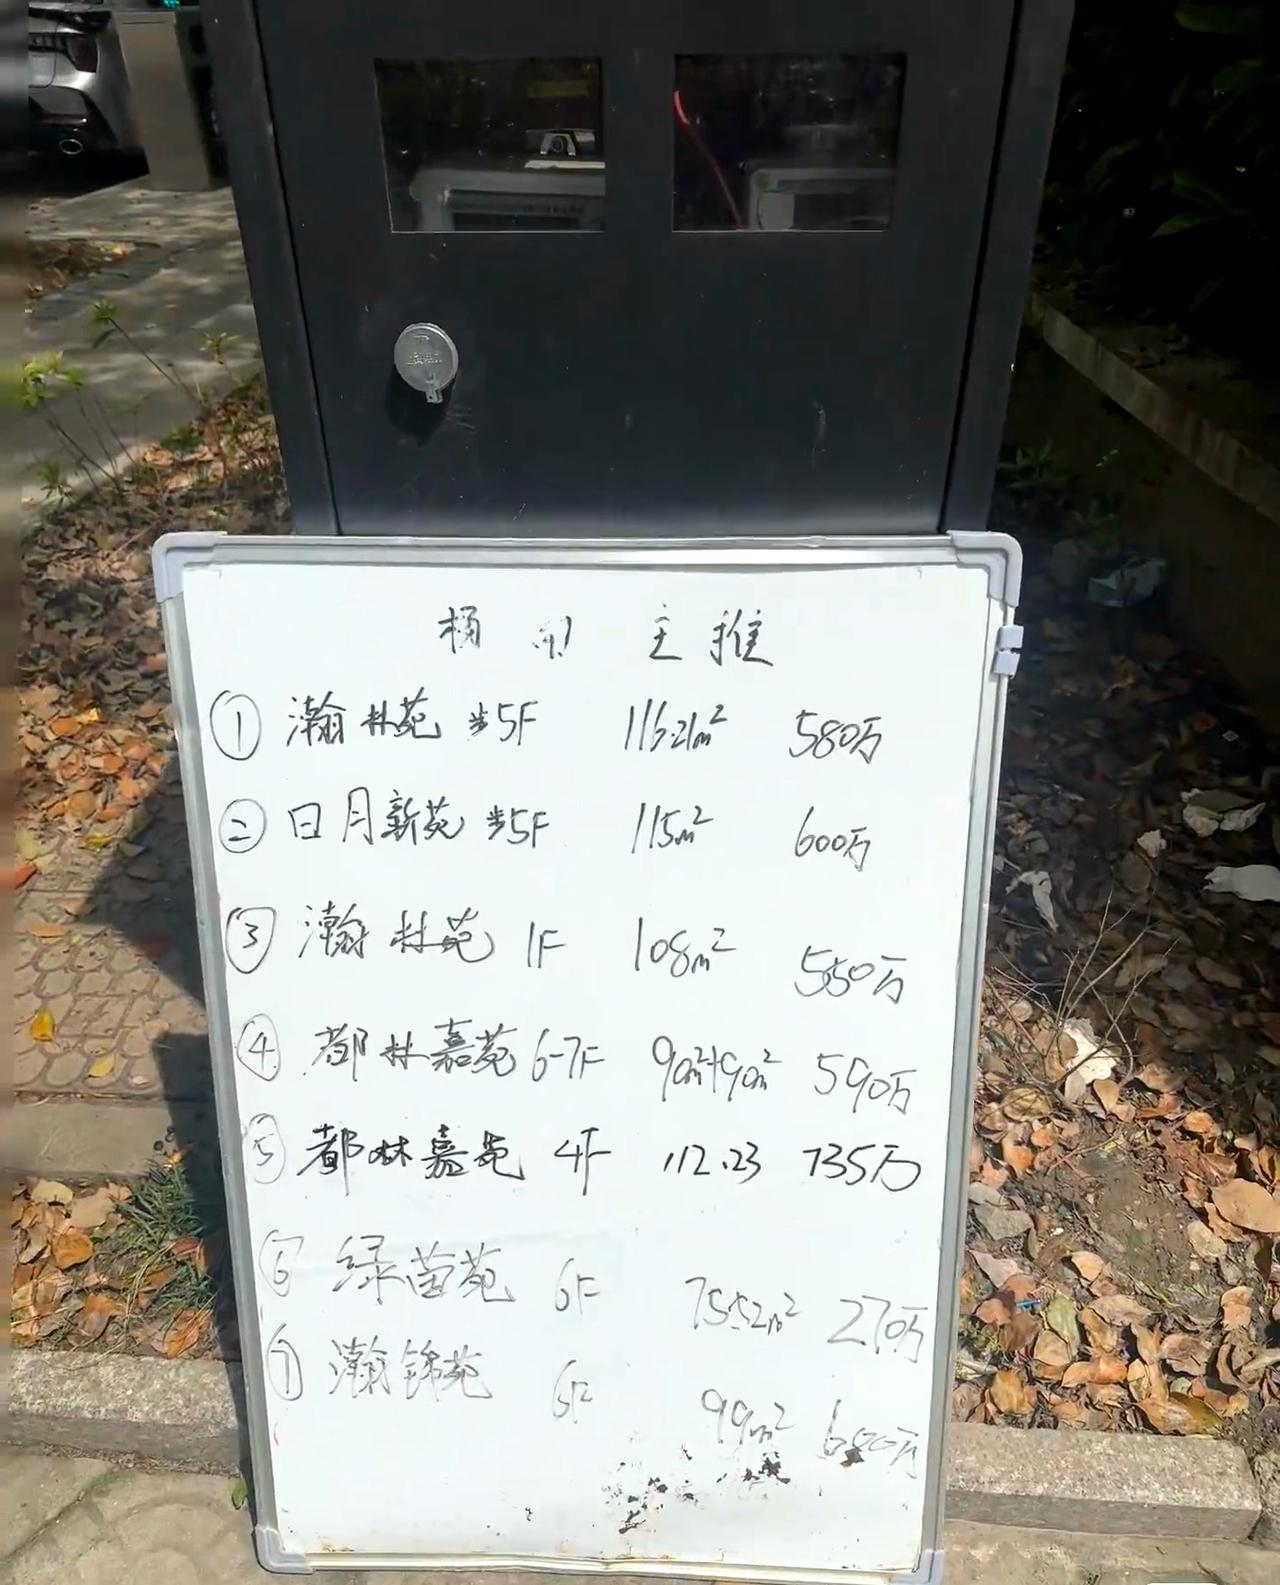 主推
① 瀚林苑 步5F 116.21m² 580万
② 日月新苑 步5F 115m² 600万
③ 瀚林苑 1F 108m² 550万
④ 都林嘉苑 6-7F 90m²+90m² 590万
⑤ 都林嘉苑 4F 112.23 735万
⑥ 绿茵苑 6F 75.52m² 270万
⑦ 瀚锦苑 6F 99m²